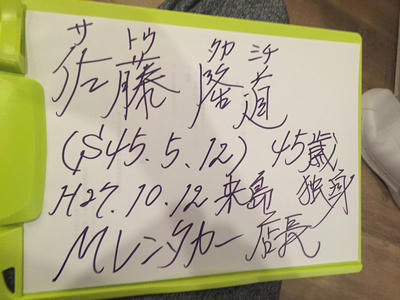 サ トウ タカ ミチ
佐藤 隆道
(S45.5.12) 45歳
H27.10.12来島 独身
Mレンタカー 店長